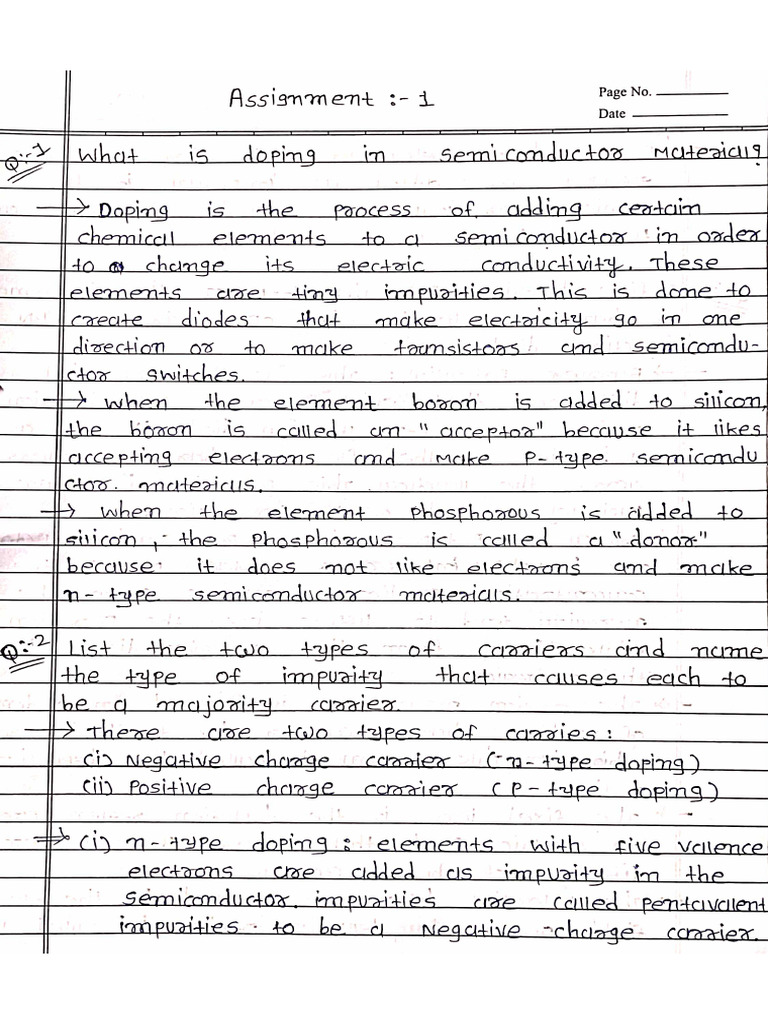 Assignment :- 1
Page No.
Date
Q:-1 What is doping in semiconductor materials?
→ Doping is the process of adding certain
chemical elements to a semiconductor in order
to change its electric conductivity. These
elements are tiny impurities. This is done to
create diodes that make electricity go in one
direction or to make transistors and semicondu-
ctor switches.
→ When the element boron is added to silicon,
the boron is called an "acceptor" because it likes
accepting electrons and make P-type semicondu
ctor. materials.
→ When the element Phosphorous is added to
silicon, the Phosphorous is called a "donor"
because it does not like electrons and make
n-type semiconductor materials.
Q:-2 List the two types of carriers and name
the type of impurity that causes each to
be a majority carrier.
→ There are two types of carries :
(i) Negative charge carrier (n-type doping)
(ii) Positive charge carrier (P-type doping)
→ (i) n-type doping : elements with five valence
electrons are added as impurity in the
semiconductor. impurities are called pentavalent
impurities to be a Negative charge carrier.